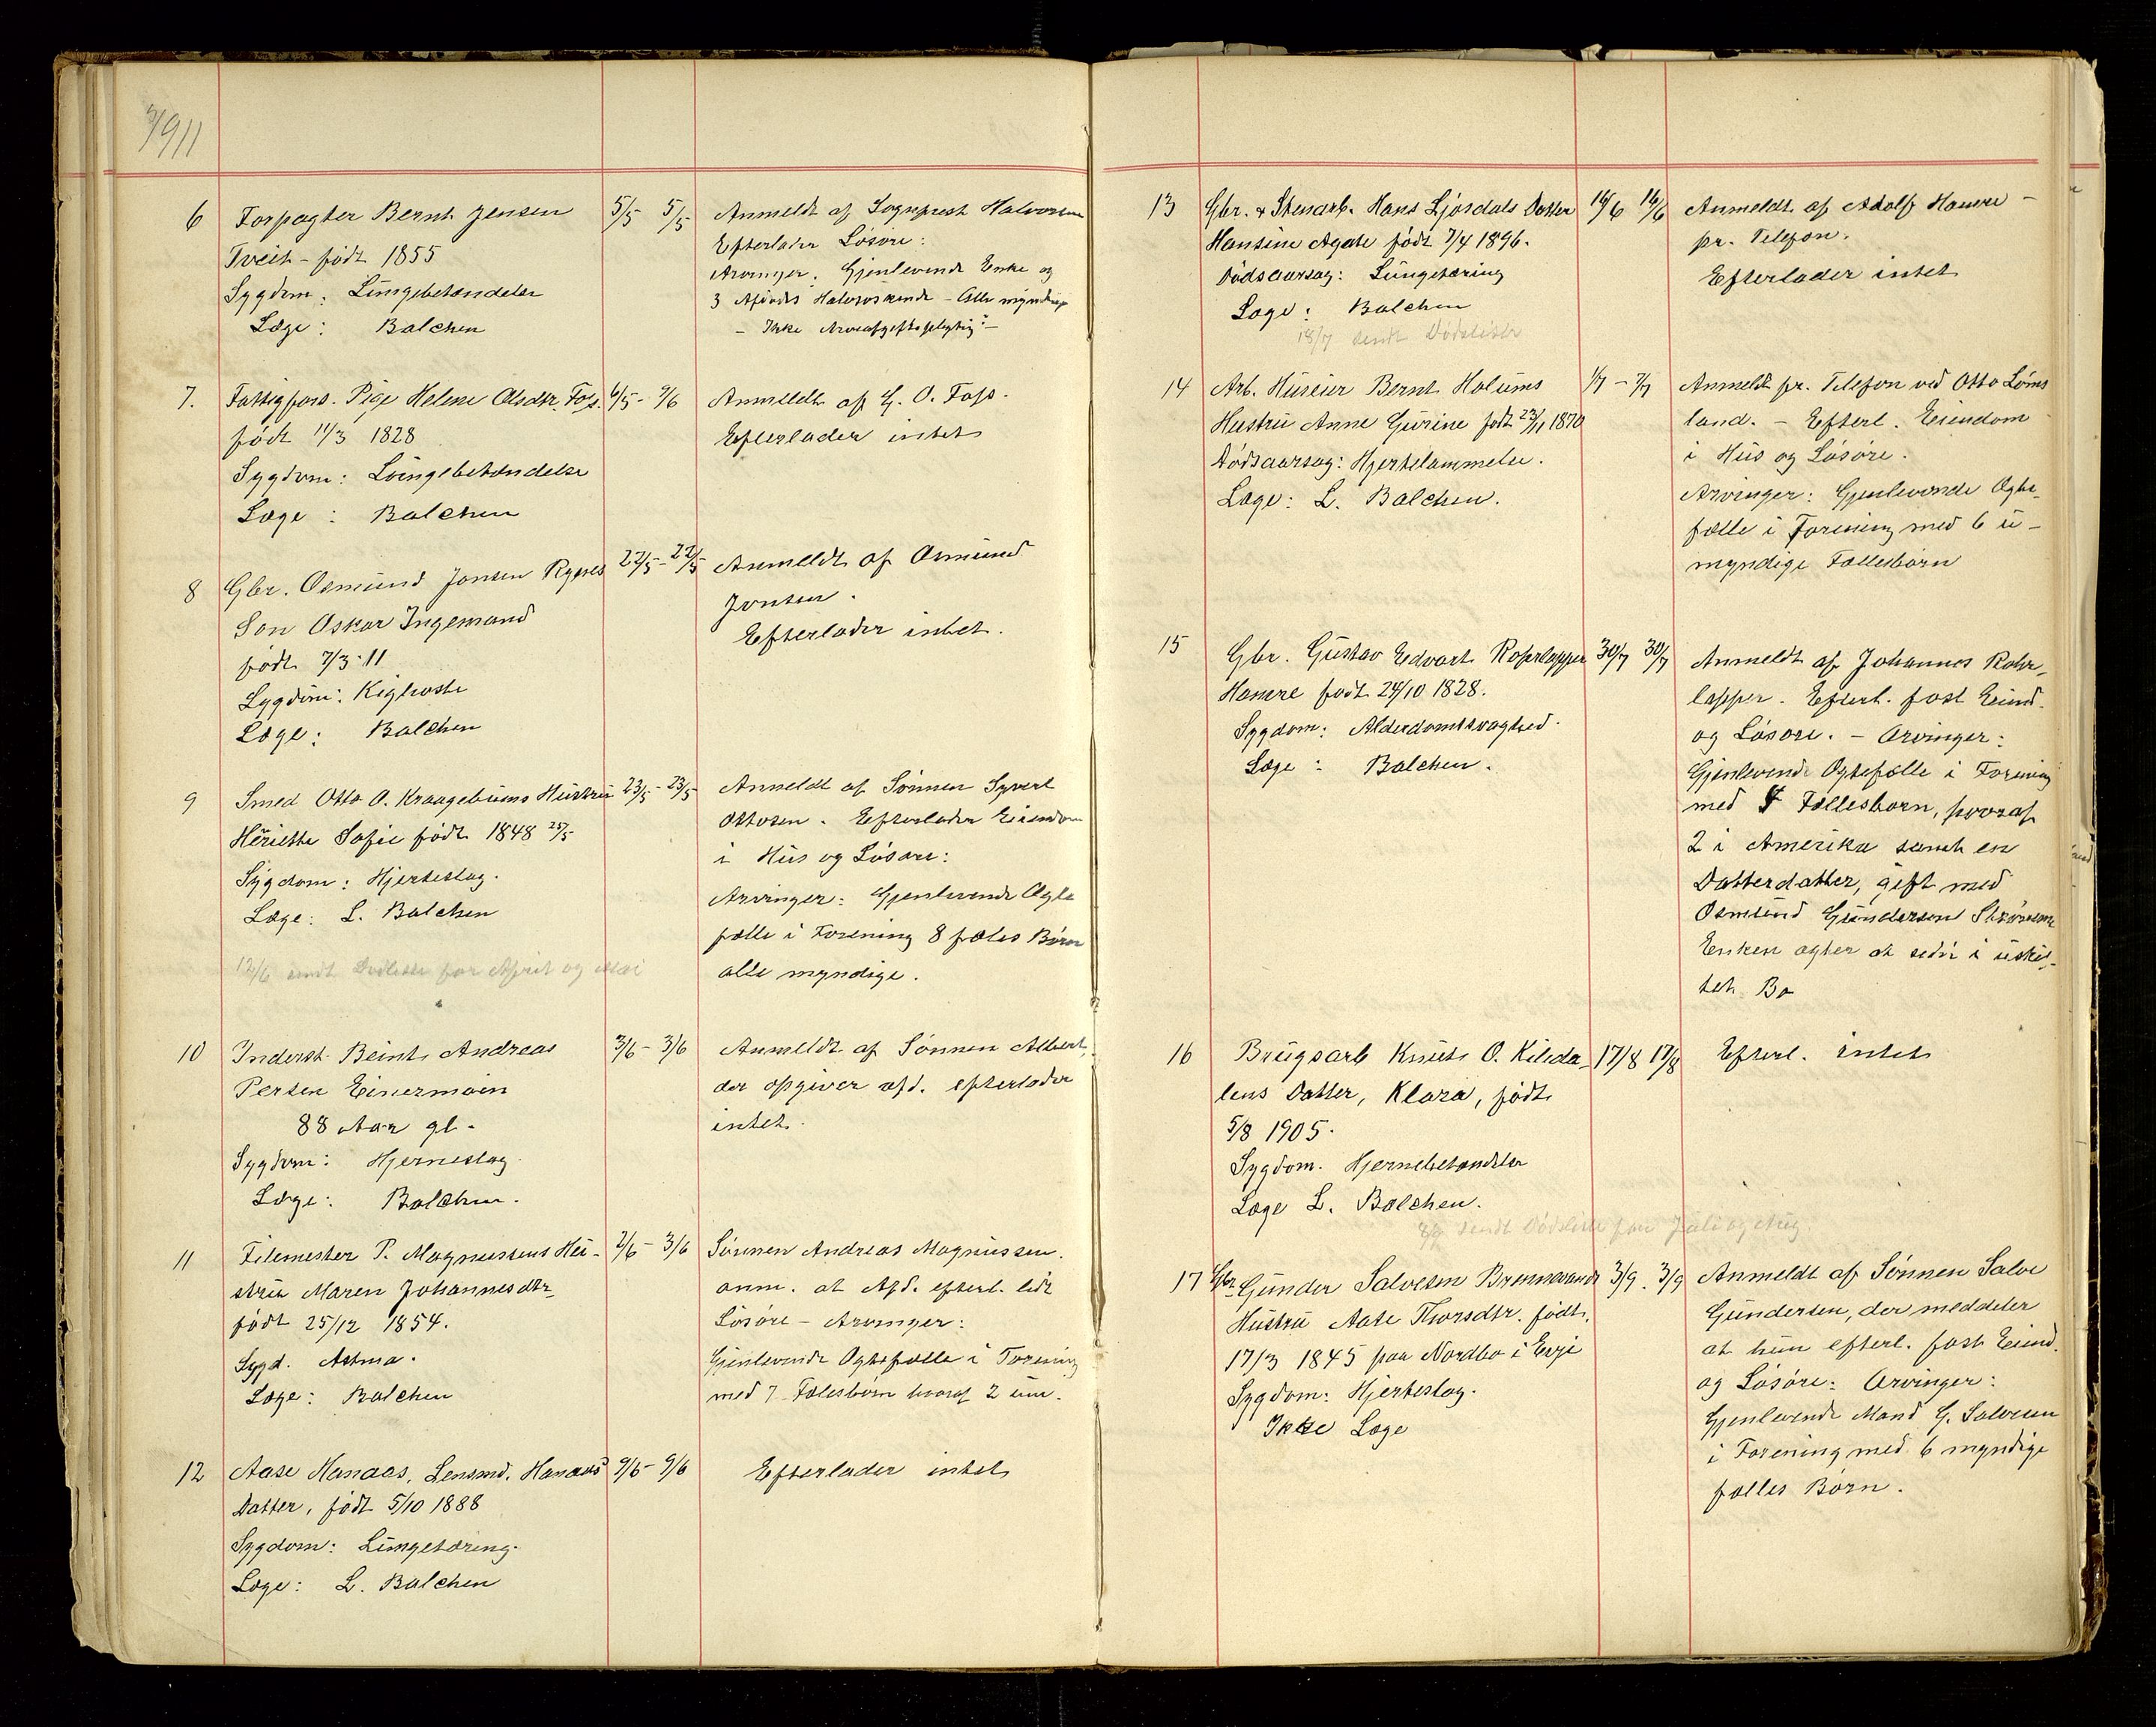 1911
6 Forpagter Bernt Jensen 5/5 5/5 Anmeldt af Sogneprest Halvorsen
Tveit - født 1855 Efterlader Løsøre:
Sygdom: Lungebetændelse Arvinger: Gjenlevende Enke og
Læge: Balchen 3 Afdødes Halvsøskende - Alle myndige
- Ikke Arveafgiftspligtig -
7. Fattigfors. Pige Helene Olsdtr. Fos. 6/5 - 9/6 Anmeldt af G. O. Foss.
født 11/3 1828 Efterlader intet
Sygdom: Lungebetændelse
Læge: Balchen
8 Gbr. Osmund Jonsen Rypes 22/5 - 22/5 Anmeldt af Osmund
Søn Oskar Ingemand Jonsen.
født 7/3-11 Efterlader intet.
Sygdom: Kighoste
Læge: Balchen
9 Smed Otto O. Kraagebums Hustru 23/5 - 23/5 Anmeldt af Sønnen Syvert
Heriette Sofie født 1848 25/5 Ottosen. Efterlader Eiendom
Sygdom: Hjerteslag. i Hus og Løsøre:
Læge: L. Balchen Arvinger: Gjenlevende Ægte
fælle i Forening 8 fæles Børn
12/6 sendt Dødliste for April og Mai alle myndige.
10 Inderst Beint Andreas 3/6 - 3/6 Anmeldt af Sønnen Albert,
Persen Einermoen der opgiver afd. efterlader
88 Aar gl. intet.
Sygdom: Hjerneslag
Læge: Balchen.
11 Filemester P. Magnussens Hu- 2/6 - 3/6 Sønnen Andreas Magnussen.
stru Maren Johannesdtr. anm. at Afd. efterl. lidt
født 25/12 1854. Løsøre - Arvinger:
Sygd. Astma. Gjenlevende Ægtefælle i Forening
Læge: Balchen med 7 Fælesbørn hvoraf 2 um.
12 Aase Hanaas, Lensmd. Hanaas 9/6 - 9/6 Efterlader intet
Datter, født 5/10 1888
Sygdom: Lungetæring.
Læge: L. Balchen
13 Gbr. & Stenarb. Hans Ljosdals Datter 16/6 16/6 Anmeldt af Adolf Homme -
Hansine Agate født 7/4 1896. pr. Telefon.
Dødsaarsag: Lungetæring Efterlader intet
Læge: Balchen
18/7 sendt Dødsliste
14 Arb. Huseier Bernt Holums 1/7 - 7/7 Anmeldt pr. Telefon ved Otto Løms
Hustru Anne Gurine født 23/11 1870 land. - Efterl. Eiendom
Dødsaarsag: Hjertelammelse. i Hus og Løsøre.
Læge: L. Balchen. Arvinger: Gjenlevende Ægte-
fælle i Forening med 6 u-
myndige Fællesbørn
15 Gbr. Gustav Edvart Robstad 30/7 30/7 Anmeldt af Johannes Rohr-
født 24/10 1828. Efterl. fast Eiend.
Sygdom: Alderdomssvaghed. og Løsøre. - Arvinger:
Læge: Balchen. Gjenlevende Ægtefælle i Forening
med Fællesbørn, hvoraf
2 i Amerika samt en
Datterdatter, gift med
Osmund Gundersen
Enken agter at sidde i uskif-
tet Bo
16 Brugsarb Knut O. Kileda- 17/8 17/8 Efterl. intet
lens Datter, Klara, født
5/8 1905.
Sygdom. Hjernebetændelse
Læge L. Balchen.
sendt Dødsliste for Juli og Aug.
17 Gbr Gunder Salvesen Brennevands 3/9. 3/9 Anmeldt af Sønnen Salve
Hustru Aase Thorsdtr. født, Gundersen, der meddeler
17/3 1845 paa Nordbø i Evje at hun efterl. fast Eiend.
Sygdom: Hjerteslag. og Løsøre: Arvinger:
Ikke Læge Gjenlevende Mand G. Salvesen
i Forening med 6 myndige
fælles Børn.